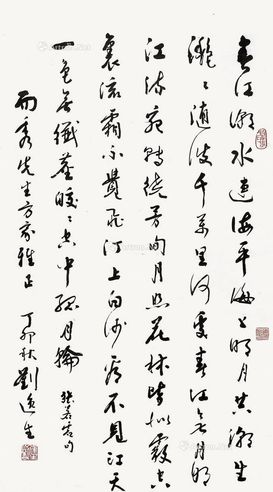 春江潮水連海平海上明月共潮生
灩〻隨波千萬里何處春江無月明
江流宛轉繞芳甸月照花林皆似霰空
裏流霜不覺飛汀上白沙看不見江天
一色無纖塵皎〻空中孤月輪 張若虛句
而秀先生方家雅正
丁卯秋 劉逸生